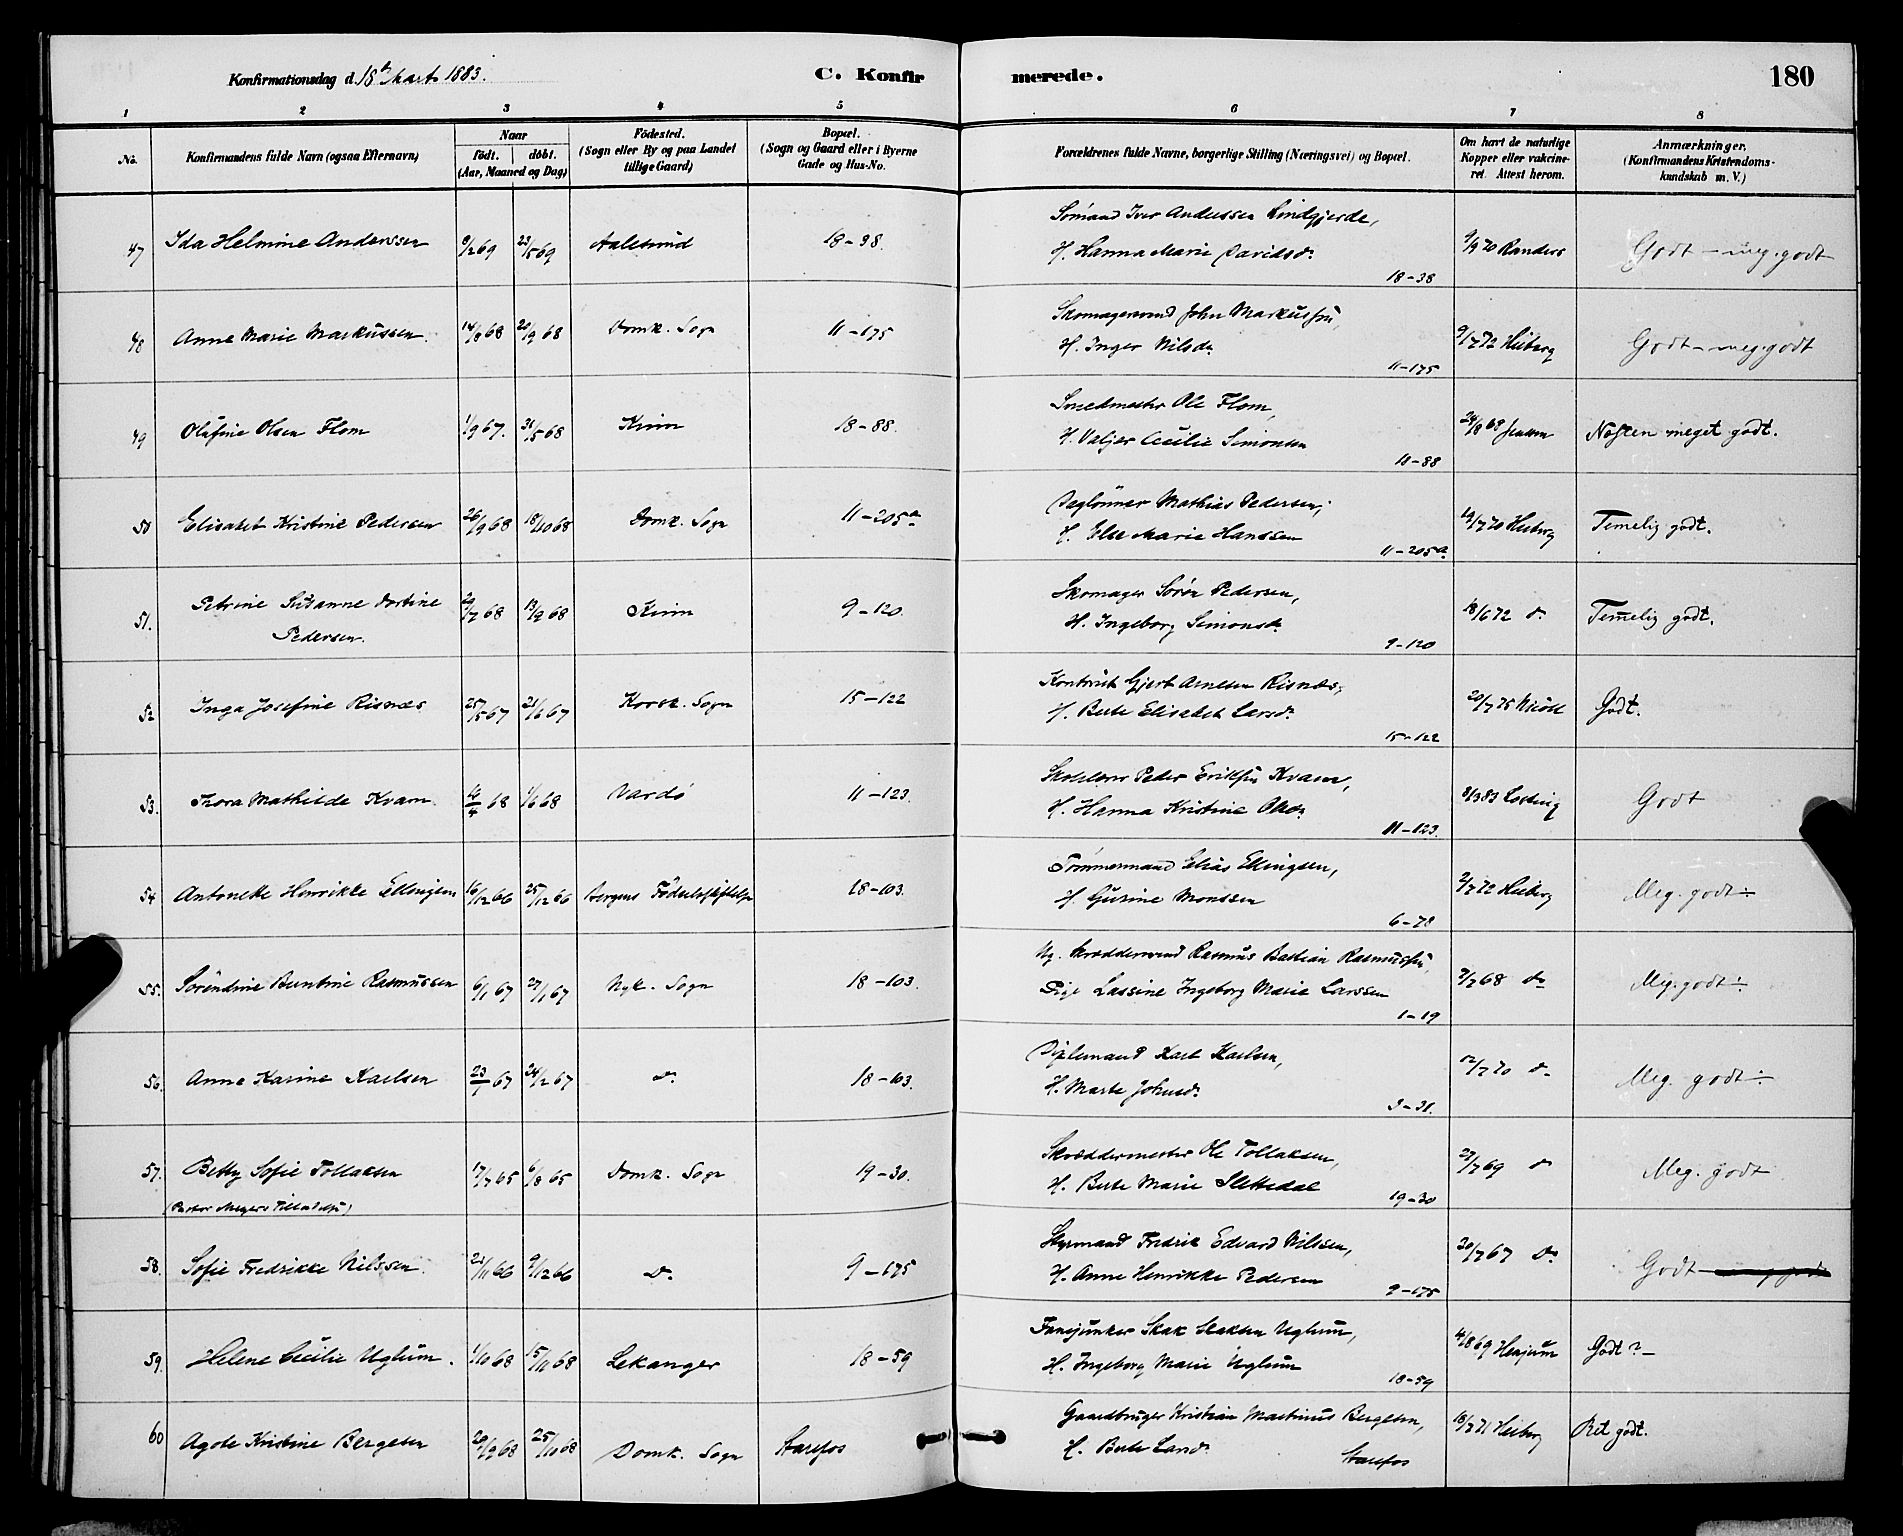 Konfirmationsdag d. 18de Marts 1883.
C. Konfirmerede.
180
1 2 3 4 5 6 7 8
No. Konfirmandens fulde Navn (ogsaa Efternavn) Naar födt. döbt. (Aar, Maaned og Dag) Födested. (Sogn eller By og paa Landet tillige Gaard) Bopæl. (Sogn og Gaard eller i Byerne Gade og Hus-No. Forældrenes fulde Navne, borgerlige Stilling (Næringsvei) og Bopæl. Om havt de naturlige Kopper eller vakcineret. Attest herom. Anmærkninger. (Konfirmandens Kristendomskundskab m. V.)
Sømand Iver Anderssen Lindgjerde,
47 Ida Helmine Anderssen 8/2 69 23/5 69 Aalesund 18-38. H. Hanna Marie Davidsdr. 9/9 70 Randers Godt - meg. godt
18-38
Skomagersvend John Markussen,
48 Anne Marie Markussen. 14/8 68 20/9 68 Domk. Sogn 11-175 H. Inger Nilsdr. 9/7 72 Heiberg Godt - meg. godt
11-175
Smedmester Ole Flom,
49 Olufine Olsen Flom 1/9 67. 31/5 68 Kinn 18-88. H. Valjer Cecilie Simonsen 24/8 68 Jenssen Næsten meget godt.
18-88
Daglønner Mathias Pedersen,
50 Elisabet Kristine Pedersen 26/9 68 18/10 68 Domk. Sogn 11-205a H. Else Marie Hanssen 19/7 70 Heiberg Temelig godt.
11-205a
Skomager Søren Pedersen,
51. Petrine Susanne Dortine Pedersen. 29/7 68 13/9 68 Kinn 9-120. H. Ingeborg Simonsdr. 18/6 72 do Temelig godt.
9-120
Kontorist Gjert Arnesen Risnæs,
52 Inga Josefine Risnæs 25/5 67 21/6 67 Korsk. Sogn 15-122 H. Berte Elisabet Larsdr. 20/7 75 Godt.
15-122
Peder Eriksen Kvam,
53. Thora Mathilde Kvam. 16/4 68 1/6 68 Vardö 11-123. H. Hanna Kristine Olsdr. 8/3 83 Godt
11-123.
Tømmermand Elias Ellingsen,
54 Antonette Henrikke Ellingsen 16/12 66 25/12 66 Bergens Fødselsstiftelse 18-103. H. Gurine Monssen 2/7 72 Heiberg Meg. godt ÷
6-78
Ug. Skræddersvend Rasmus Bastian Rasmussen,
55. Sörendine Berntine Rasmussen 6/1 67 27/1 67 Nyk. Sogn 18-103. Pige Lassine Ingeborg Marie Larssen 7/7 68 do Meg. godt ÷
1-19
Karl Karlsen,
56. Anne Karine Karlsen 23/1 67 24/2 67 do 18-103. H. Marte Johnsdr. 12/7 70 do Meg. godt ÷
3-31.
Skræddermester Ole Tollaksen,
57. Betty Sofie Tollaksen 17/7 65 6/8 65 Domk. Sogn 19-30. H. Berte Marie Slettedal 27/7 69 do Meg. godt
(Pastor Meyers Tilladelse) 19-30
Styrmand Fredrik Edvard Nilssen,
58. Sofie Fredrikke Nilssen. 21/11 66 9/12 66 do 9-175 H. Anne Henrikke Pedersen 30/7 67 do Godt
9-175
Fanejunker Skak Skaksen Uglum,
59. Helene Cecilie Uglum. 1/10 68 15/11 68 Lekanger 18-59 H. Ingeborg Marie Uglum 4/8 69 Henjum Godt ? -
18-59
Gaardbruger Kristian Martinus Bergesen,
60 Agote Kristine Bergesen 20/9 68 25/10 68 Domk. Sogn Starefos H. Berte Larsdr. 18/7 71 Heiberg Ret godt.
Starefos